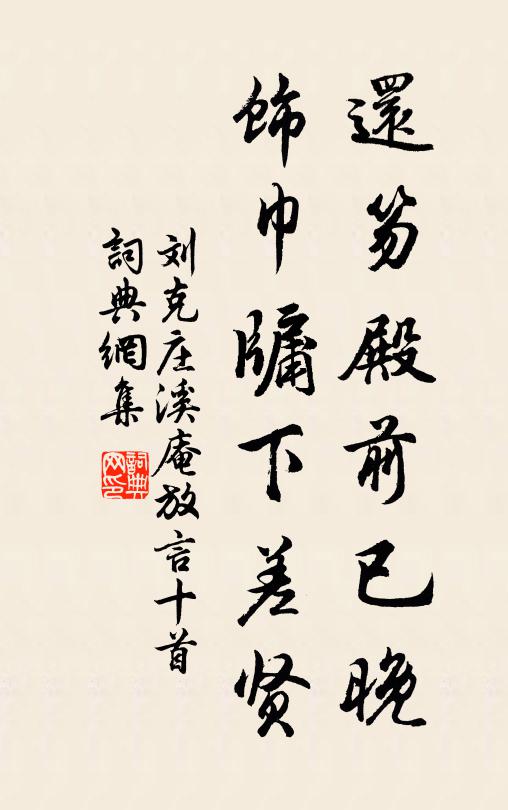 還笏殿前已晚
飾巾牖下差贤
刘克庄溪庵放言十首
詞典網集
詞典網印